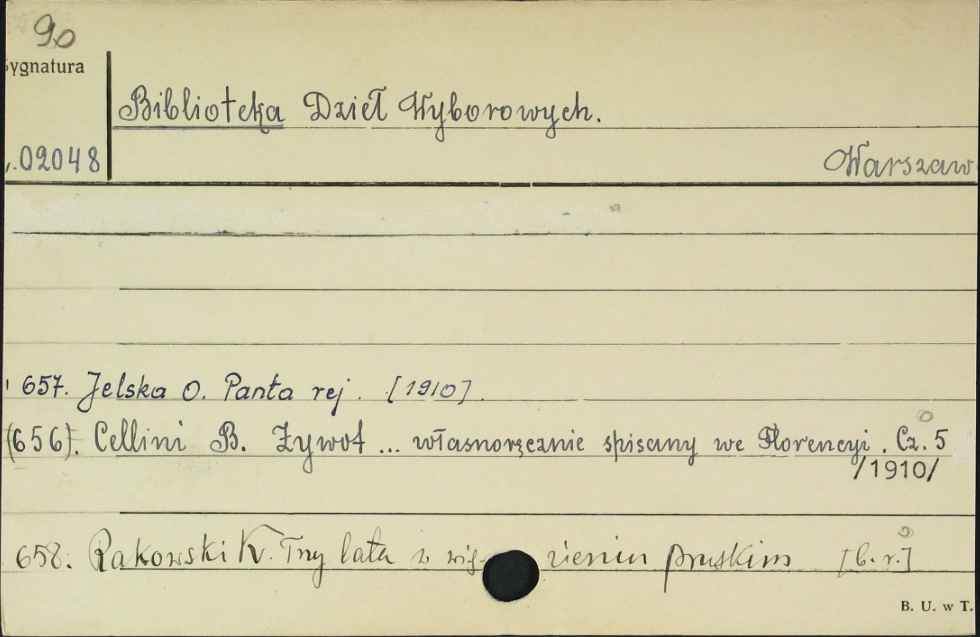 90
Sygnatura
Biblioteka Dzieł Wyborowych.
02048
Warszaw
657. Jelska O. Panta rej. [1910].
(656). Cellini B. Żywot ... własnoręcznie spisany we Florencyi. Cz. 5
/1910/
658. Rakowski K. Trzy lata w wię- zieniu pruskim [b. r.]
B. U. w T.